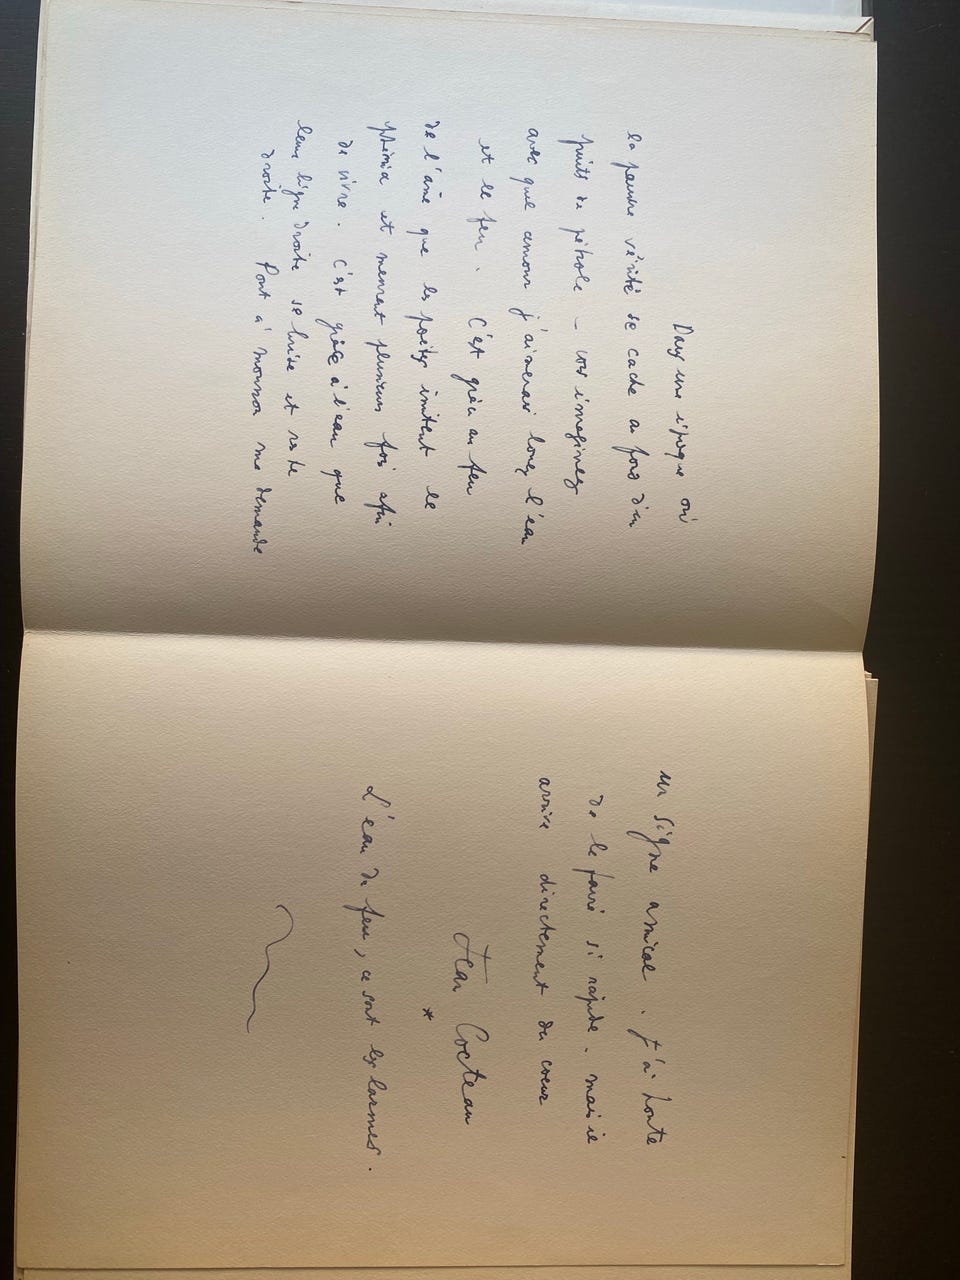 Dans une époque où
la pauvre vérité se cache au fond d'un
puits de pétrole – vous imaginez
avec quel amour j'aimerais louer l'eau
et le feu. C'est grâce au feu
de l'âme que les poètes imitent le
phénix et meurent plusieurs fois afin
de vivre. C'est grâce à l'eau que
leur ligne droite se brise et reste
droite. Pont à Mousson me demande
un signe amical. J'ai honte
de le faire si rapide. mais il
arrive directement du cœur
Jean Cocteau
*
L'eau de feu, ce sont les larmes.